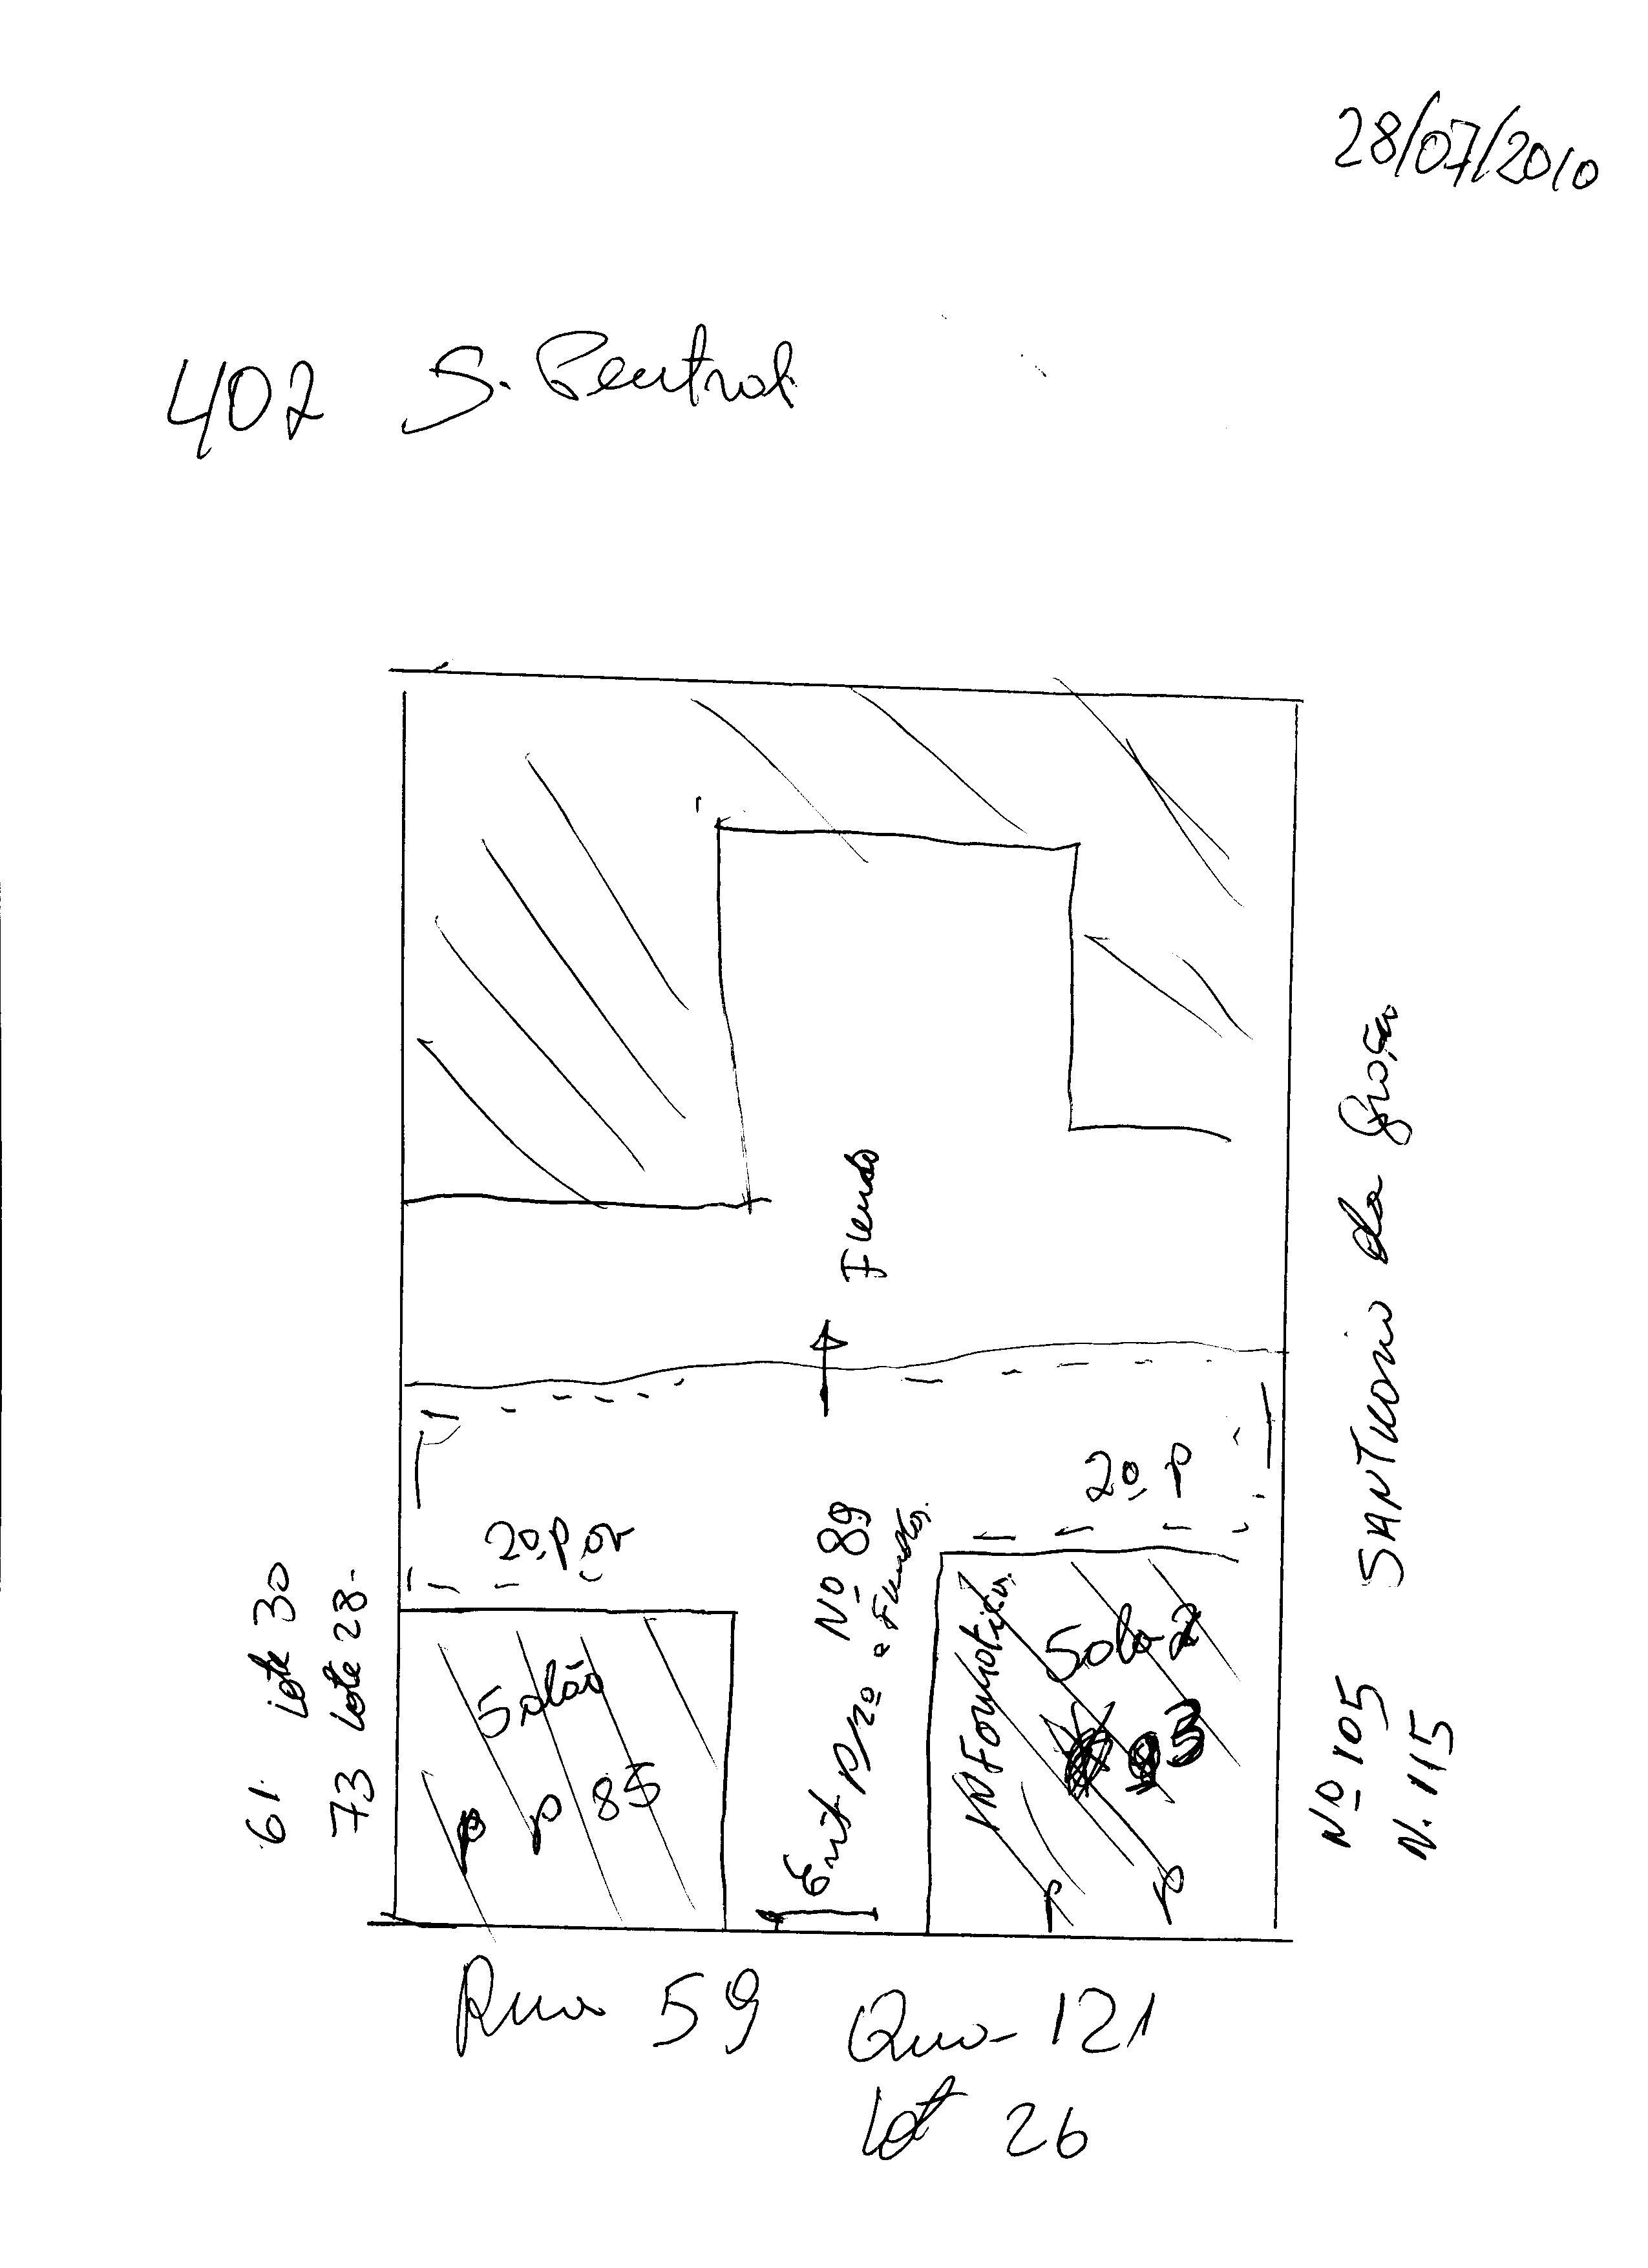 28/07/2010
402 S. Central
Fundo
2º P
2º. P or
Nº 89
Ent P/ 2º e Fundos.
Salão
P P 85
INFORMÁTICA
Sala 2
93
P P
61. Lote 30
73 Lote 28.
SANTUARIO da Graça
Nº 105
N. 115
Rua 59 Qua- 121
Lot 26